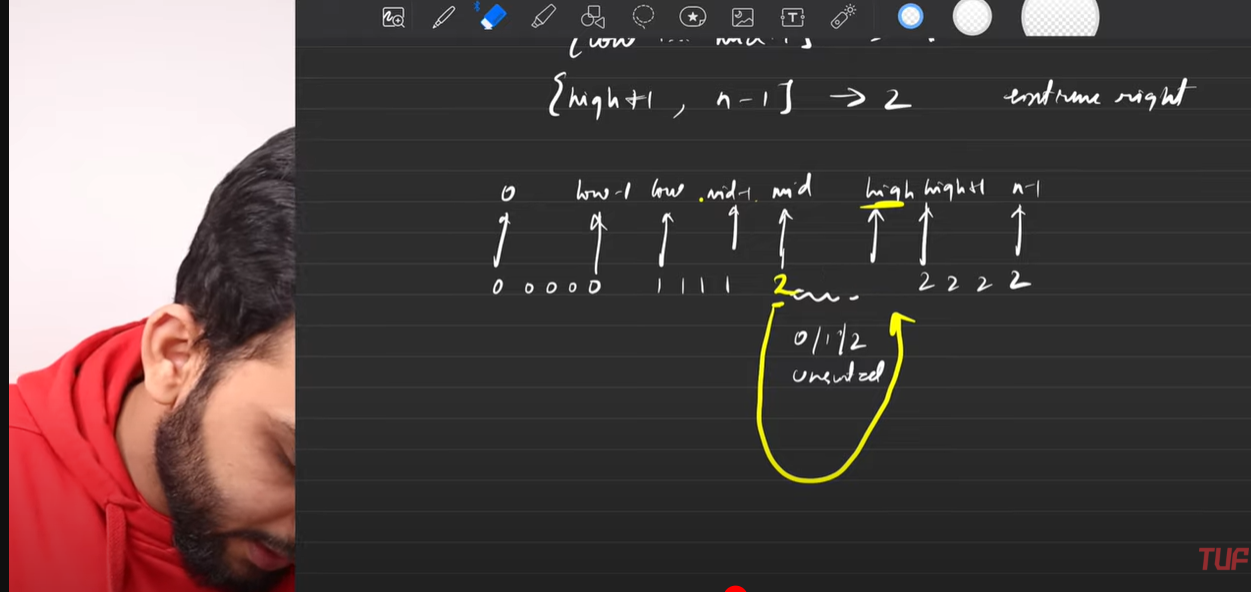 [low ... mid-1]
[high+1, n-1] → 2 extreme right
0 low-1 low mid-1 mid high high+1 n-1
0 0 0 0 0 1 1 1 1 2 2 2 2 2
0/1/2
unsorted
TUF